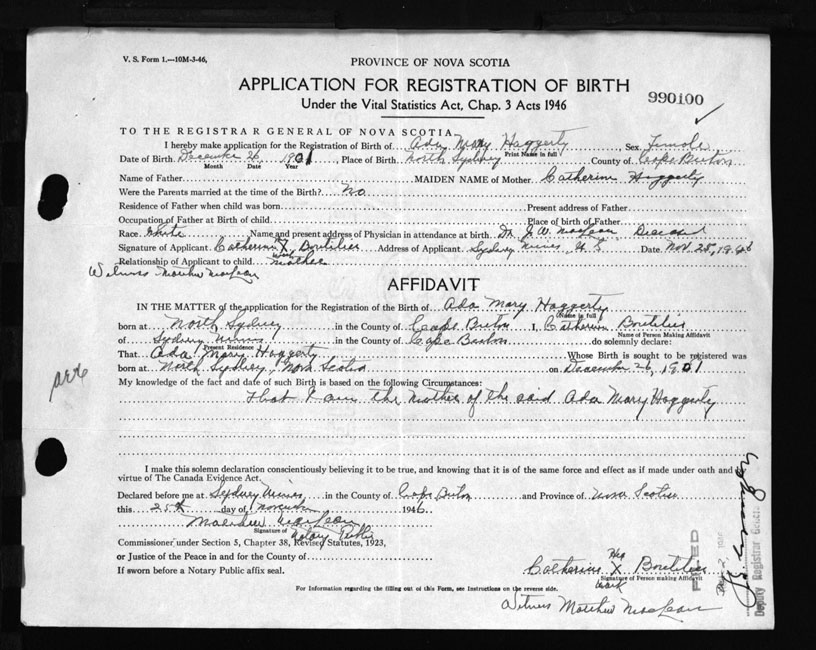 V. S. Form 1.—10M-3-46,
PROVINCE OF NOVA SCOTIA
APPLICATION FOR REGISTRATION OF BIRTH
Under the Vital Statistics Act, Chap. 3 Acts 1946
990100
TO THE REGISTRAR GENERAL OF NOVA SCOTIA
I hereby make application for the Registration of Birth of Ada Mary Haggerty Sex Female
Print Name in full
Date of Birth December 26, 1901 Place of Birth North Sydney County of Cape Breton
Month Date Year
Name of Father MAIDEN NAME of Mother Catherine Haggerty
Were the Parents married at the time of the Birth? No
Residence of Father when child was born Present address of Father
Occupation of Father at Birth of child Place of birth of Father
Race White Name and present address of Physician in attendance at birth Dr. J. W. MacLean Deceased
Signature of Applicant Catherine X Boutilier Address of Applicant Sydney Mines, N. S. Date Nov. 25, 1946
Relationship of Applicant to child mother
Witness Matthew MacLean
AFFIDAVIT
IN THE MATTER of the application for the Registration of the Birth of Ada Mary Haggerty
(Name in full)
born at North Sydney in the County of Cape Breton I, Catherine Boutilier
Name of Person Making Affidavit
of Sydney Mines in the County of Cape Breton do solemnly declare:
Present Residence
That Ada Mary Haggerty Whose Birth is sought to be registered was
born at North Sydney, Nova Scotia on December 26, 1901
My knowledge of the fact and date of such Birth is based on the following Circumstances:
That I am the mother of the said Ada Mary Haggerty
I make this solemn declaration conscientiously believing it to be true, and knowing that it is of the same force and effect as if made under oath and
virtue of The Canada Evidence Act.
Declared before me at Sydney Mines in the County of Cape Breton and Province of Nova Scotia
this 25th day of November 1946
Matthew MacLean
Signature of Notary Public
Commissioner under Section 5, Chapter 38, Revised Statutes, 1923,
or Justice of the Peace in and for the County of
If sworn before a Notary Public affix seal.
Catherine her X mark Boutilier
Signature of Person making Affidavit
For Information regarding the filling out of this Form, see Instructions on the reverse side.
Witness Matthew MacLean
FILED
Deputy Registrar General